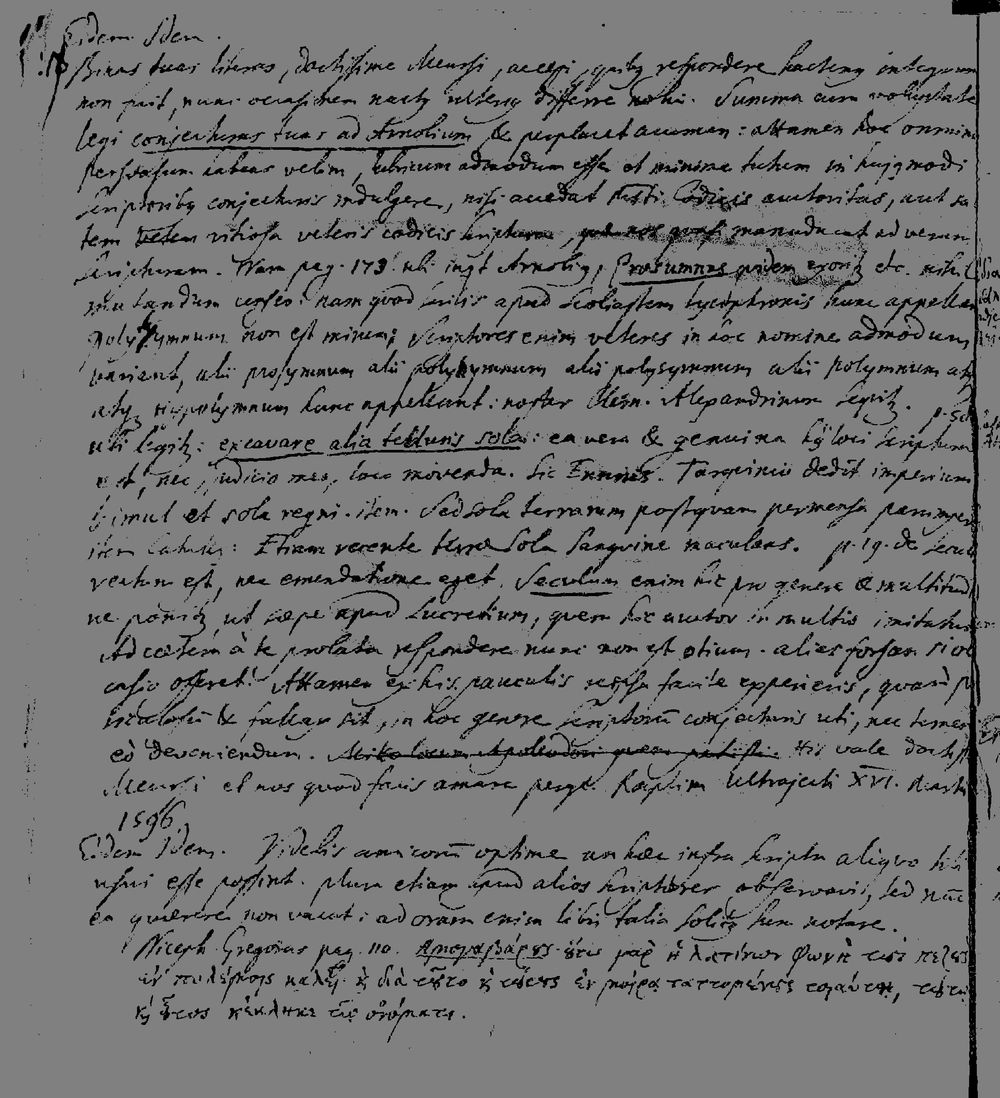 Eidem Idem.
Binas tuas literas, doctissime Meursi, accepi, quibus respondere hactenus integrum
non fuit, nunc occasionem nactus ulterius differre nolui. Summa cum voluptate
legi conjecturas tuas ad Arnobium & perplacet acumen: attamen hoc omnino
persuasum habeas velim, lubricum admodum esse et minime tutum in hujusmodi
scriptoribus conjecturis indulgere, nisi accedat Codicis auctoritas, aut sa
tem vitiosa veteris codicis scriptura, manuducat ad veram
scripturam. Nam pag. 173 ubi inquit Arnobius, Prosumnus etc. nihil
mutandum censeo: nam quod scribis apud scoliastem Lycophronis hunc appellari
polyhymnum non est mirum; Scriptores enim veteres in hoc nomine admodum
variant, alii prosymnum alii polyhymnum alii polysymnum alii polymnum at
atque Hyppolymnum hunc appellant: noster Clem. Alexandrinum legitur. p. 50
ubi legitur: excavare alia telluris sola: ea vera & genuina hujus loci scriptura
est, nec, judicio meo, loco movenda. Sic Ennius. Tarquinio dedit imperium
simul et sola regni. item. Sed sola terrarum postquam permensa parumper
item Catulus: Etiam recente terrae sola sanguine maculans. p. 19. de secul
vertum est, nec emendatione eget. Seculum enim hic pro genere & multitud
ne ponitur, ut saepe apud Lucretium, quem hic auctor in multis imitatus
Ad caetera à te prolata respondere nunc non est otium. alias forsan si oc
casio offeret. Attamen ex his pauculis re ipsa facile experieris, quam p
iculosum & fallax sit, in hoc genere scriptorum conjecturis uti, nec temere
eò deveniendum. His vale doctiss
Meursi et nos quod facis amare perge. Raptim Ultrajecti XVI. Martii
1596
Eidem Idem. Videbis amicorum optime an haec infra scripta aliquo tibi
usui esse possint. plura etiam apud alios scriptores observavi, sed nunc
ea quaerere non vacat: ad oram enim libri talia solitus sum notare.
Niceph. Gregoras pag. 110. οὕτω γὰρ ἡ λατίνων φωνὴ τοὺς πεζοὺς
ἐν πολέμοις καλεῖ. καὶ διὰ τοῦτο καὶ ἐν μοίρᾳ ταττομένους τοιαύτῃ,
καὶ οὕτως κέκληκε τοῖς ὀνόμασι.